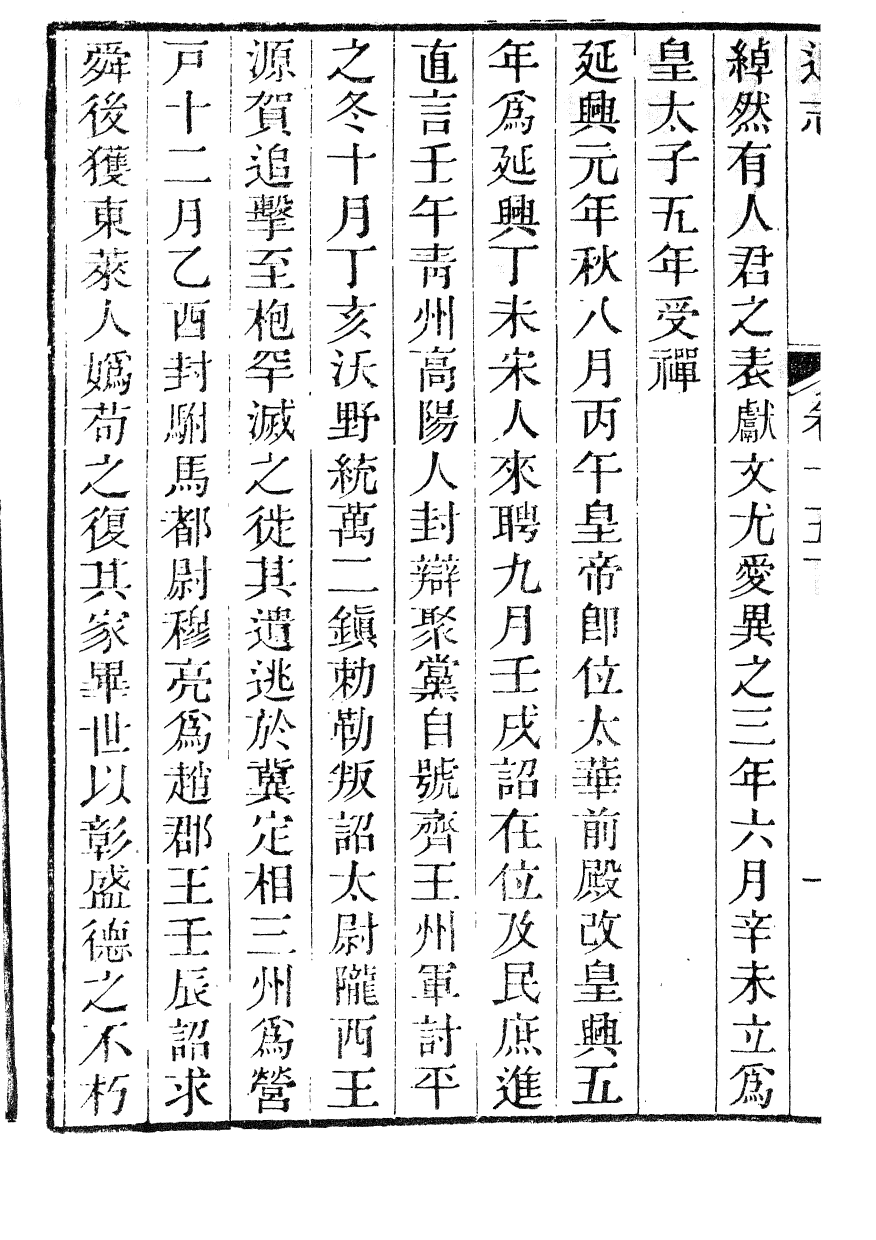 綽然有人君之表獻文尤愛異之三年六月辛未立爲
皇太子五年受禪
延興元年秋八月丙午皇帝卽位太華前殿改皇興五
年爲延興丁未宋人來聘九月壬戌詔在位及民庶進
直言壬午靑州高陽人封辯聚黨自號齊王州軍討平
之冬十月丁亥沃野統萬二鎭勅勒叛詔太尉隴西王
源賀追擊至枹罕滅之徙其遺逃於冀定相三州爲營
戸十二月乙酉封駙馬都尉穆亮爲趙郡王壬辰詔求
舜後獲東萊人嬀苟之復其家畢世以彰盛德之不朽